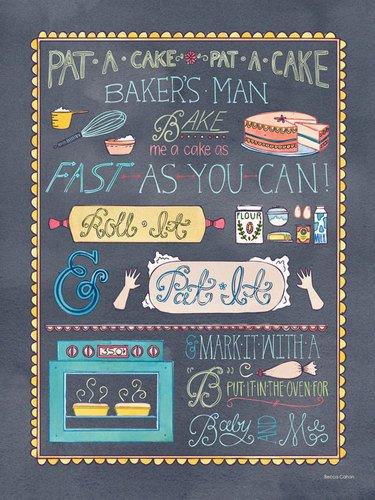 PAT·A·CAKE PAT·A·CAKE
BAKER'S·MAN
BAKE
me a cake as
FAST AS YOU CAN!
Roll·It
FLOUR
&
Pat·It
350°
& MARK·IT·WITH·A
"B" PUT·IT·IN·THE·OVEN·FOR
Baby AND Me
Becca Cahan